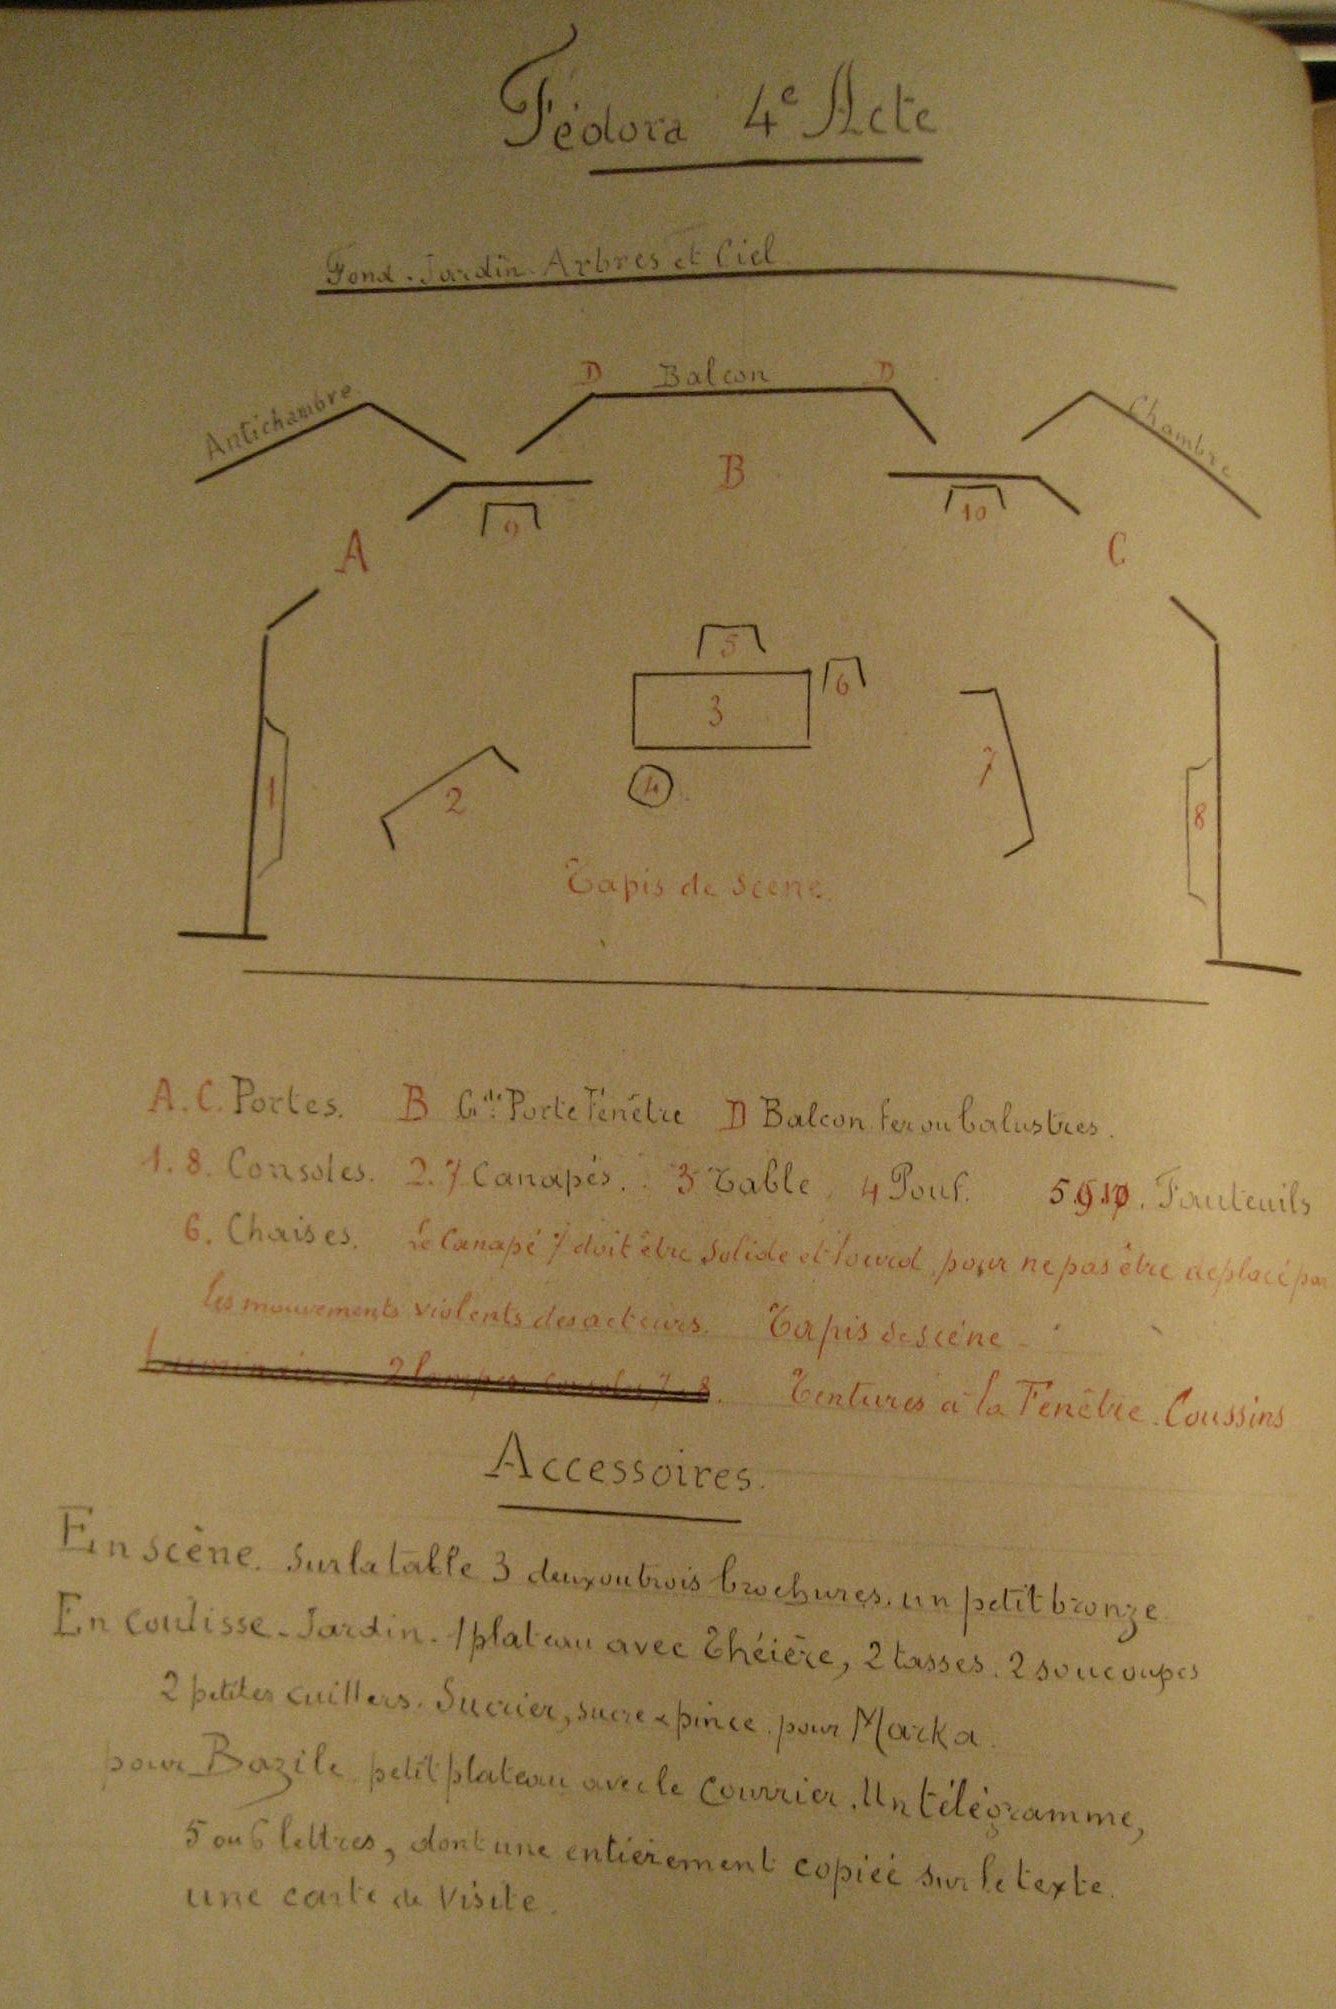 Fédora 4e Acte
Fond. Jardin. Arbres et Ciel.
D Balcon D
Antichambre
Chambre
B
9
10
A
C
5
6
3
7
1
2
4
8
Tapis de scene.
A. C. Portes. B Gde Porte Fenêtre D Balcon fer ou balustres.
1. 8. Consoles. 2. 7 Canapés. 3 Table. 4 Pouf. 5 9 10. Fauteuils
6. Chaises. Le Canapé 7 doit être solide et lourd pour ne pas être deplacé par
les mouvements violents des acteurs. Tapis de scéne -
Luminaire. 2 lampes. consoles 7. 8. Tentures à la Fenêtre. Coussins
Accessoires.
En scène. Sur la table 3 deux ou trois brochures. un petit bronze
En coulisse - Jardin. 1 plateau avec Théière, 2 tasses. 2 soucoupes
2 petites cuillers. Sucrier, sucre & pince. pour Marka.
pour Bazile petit plateau avec le Courrier. Un télégramme,
5 ou 6 lettres, dont une entièrement copiéé sur le texte.
une carte de visite.